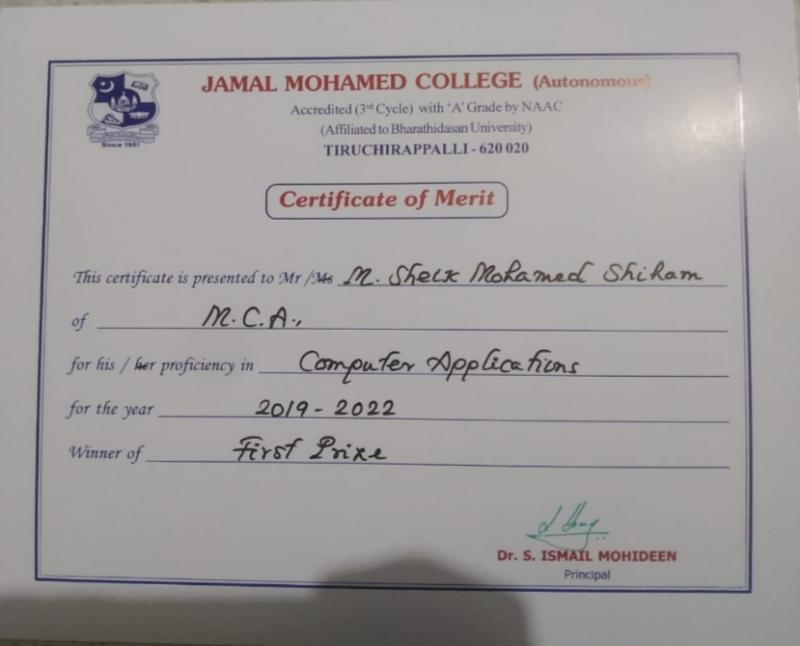 JAMAL MOHAMED COLLEGE (Autonomous)
Accredited (3rd Cycle) with 'A' Grade by NAAC
(Affiliated to Bharathidasan University)
TIRUCHIRAPPALLI - 620 020
Since 1951
Certificate of Merit
This certificate is presented to Mr / Ms M. Sheik Mohamed Shiham
of M.C.A.,
for his / her proficiency in Computer Applications
for the year 2019 - 2022
Winner of First Prize
Dr. S. ISMAIL MOHIDEEN
Principal